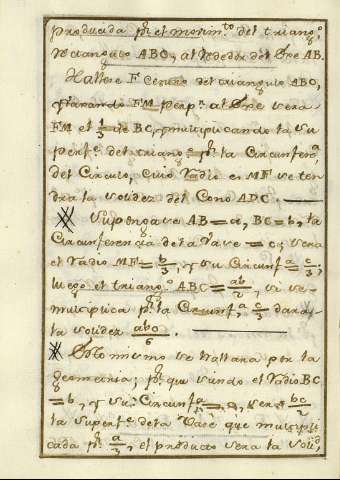 producida pr. el movim.to del triang.o
rectangulo ABC, al rededor del Exe AB.
Hallese F Centro del triangulo ABC,
tirando FM perp.r al Exe sera
FM el 1/3 de BC, y multiplicando la su
perf.e del triang.o pr. la Circunfer.a
del Circulo, cuio Radio es MF se ten
dra la solidez del Cono ADC.
Supongase AB=a, BC=b, la
Circunferencia de la Vase = c; sera
el Radio MF= b/3, y su Circunf.a = c/3;
luego el triang.o ABC= ab/2, si se
multiplica pr. la Circunf.a c/3 dara
la solidez abc/6.
Esto mismo se hallara por la
geometria; pr. que siendo el Radio BC
=b, y su Circunf.a = c, sera bc/2
la superf.e de la Vase que multipli
cada pr. a/3, el producto sera la solid.